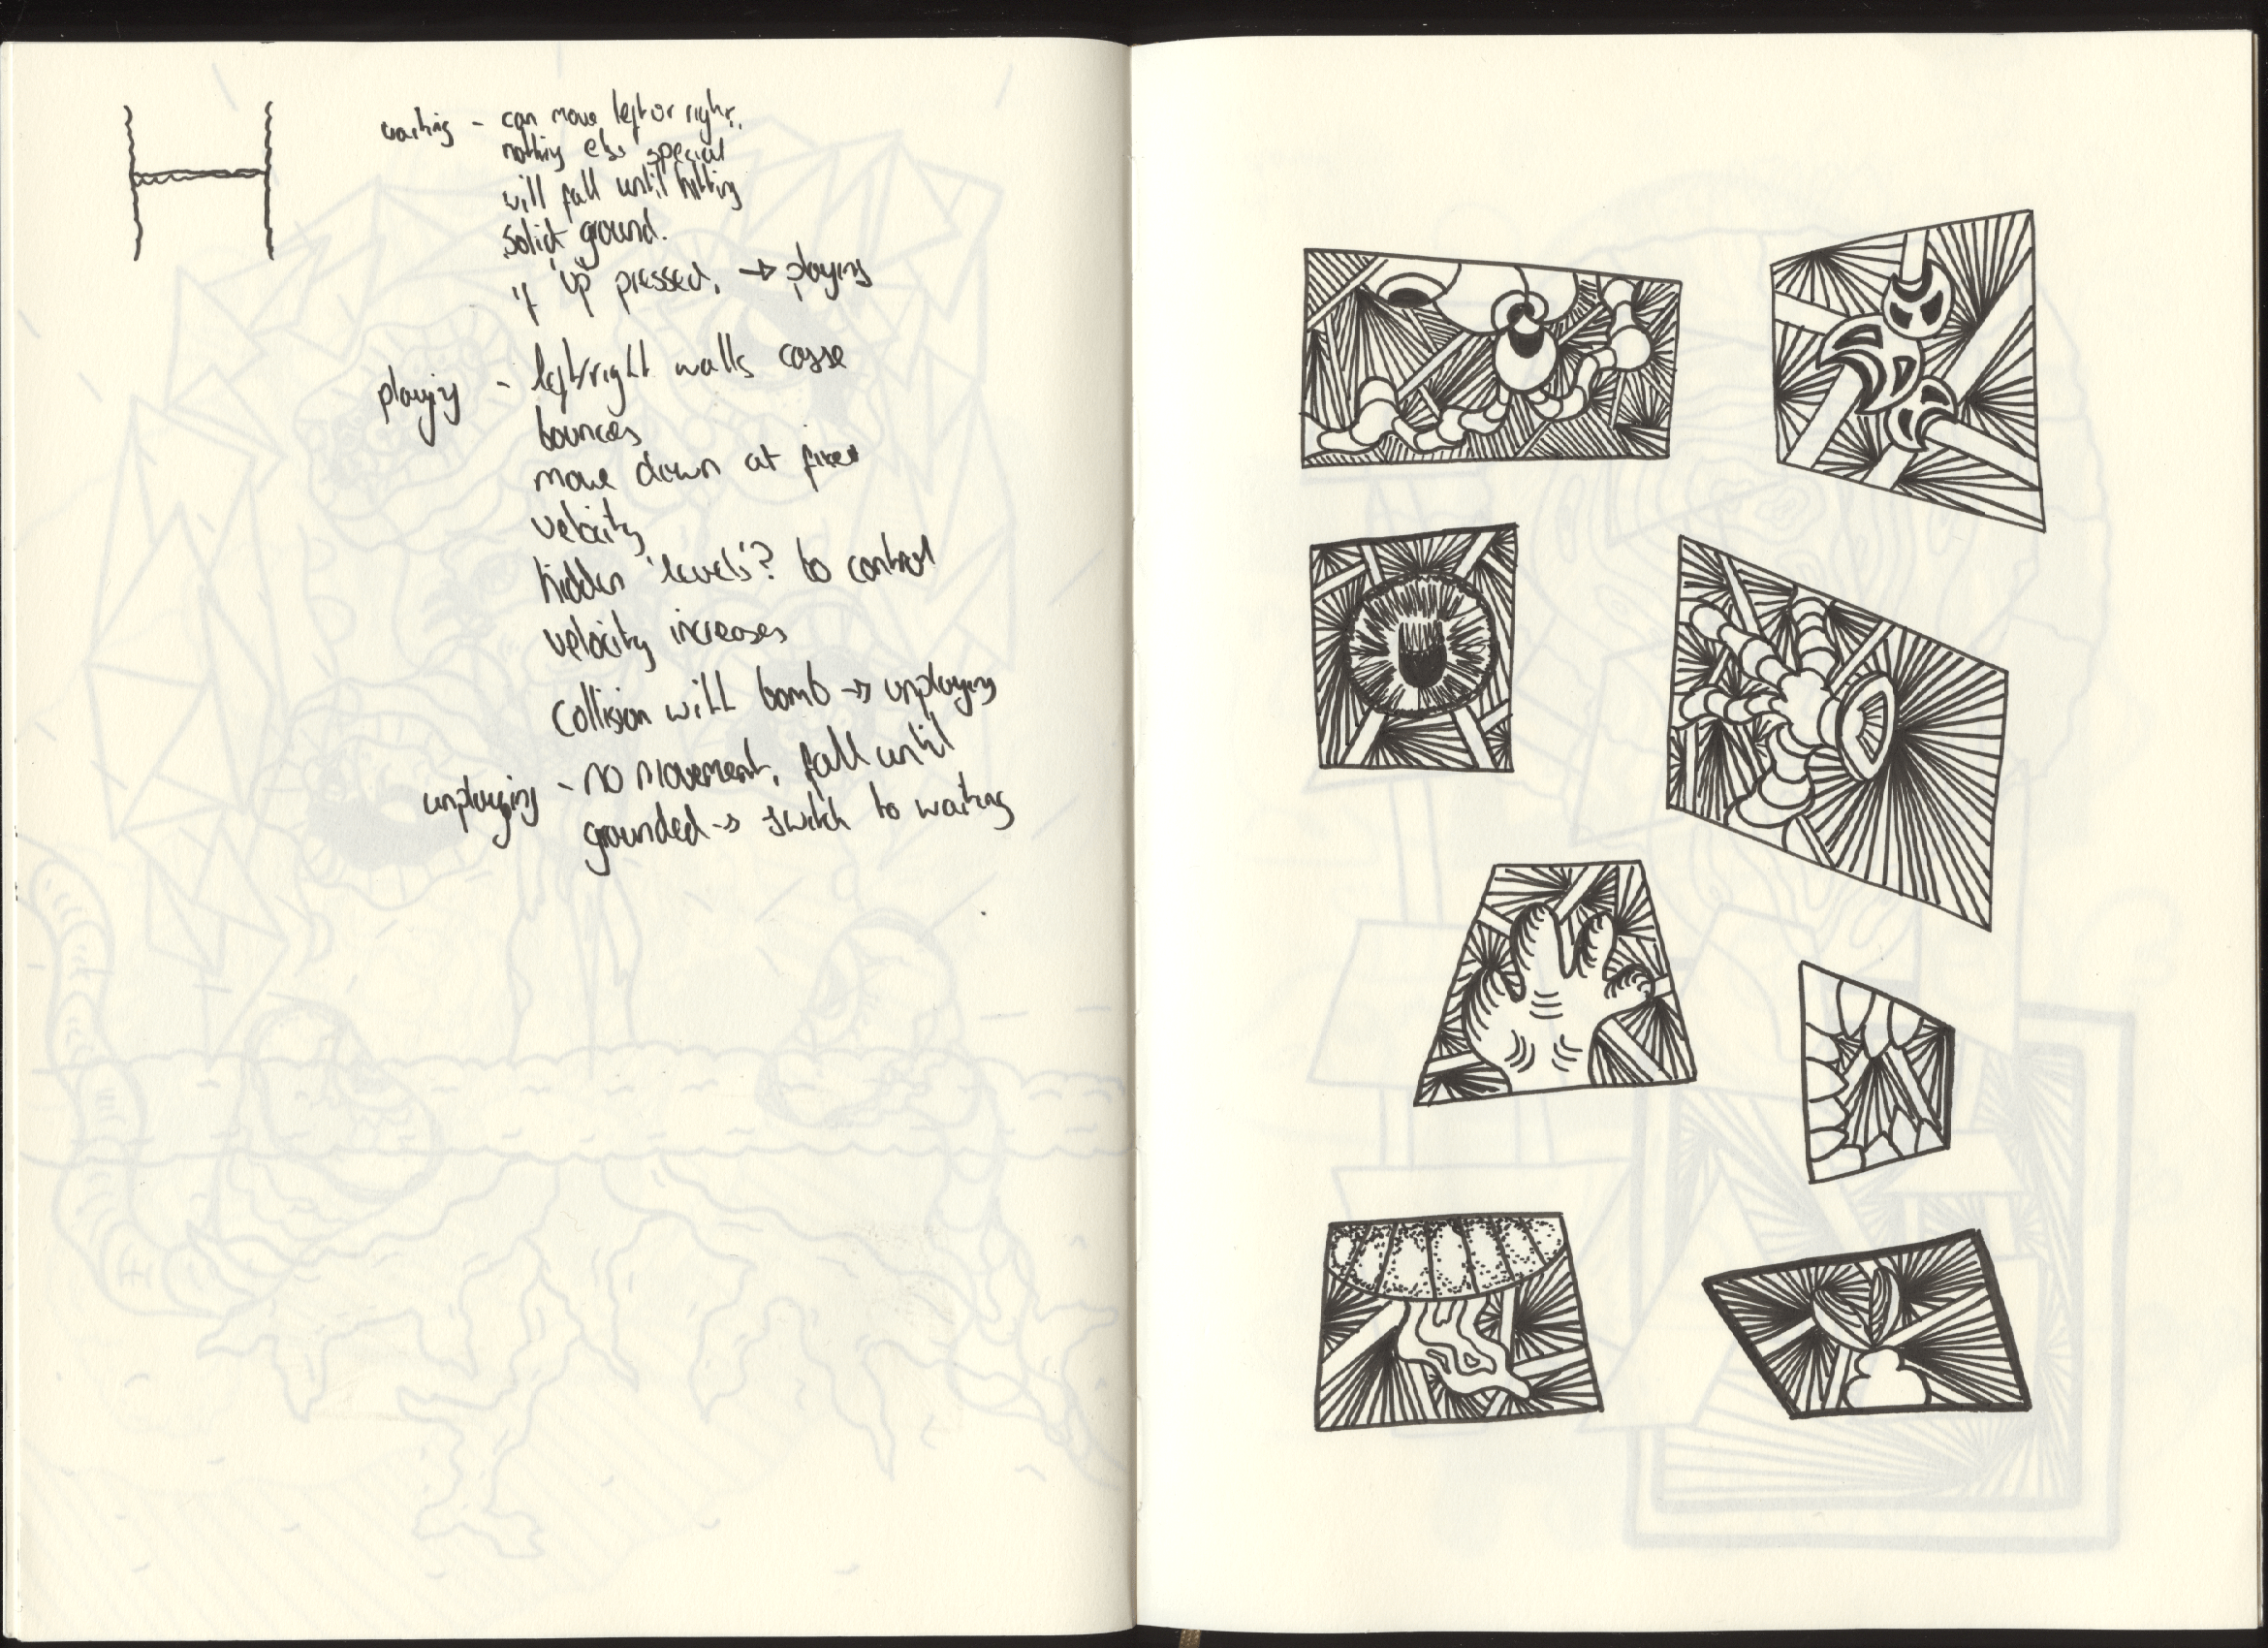 waiting - can move left or right,
nothing else special
will fall until hitting
solid ground.
if 'up' pressed, → playing
playing - left/right walls casse
bounces
move down at fixed
velocity
hidden 'levels'? to control
velocity increases
collision will bomb → unplaying
unplaying - no movement, fall until
grounded → switch to waiting